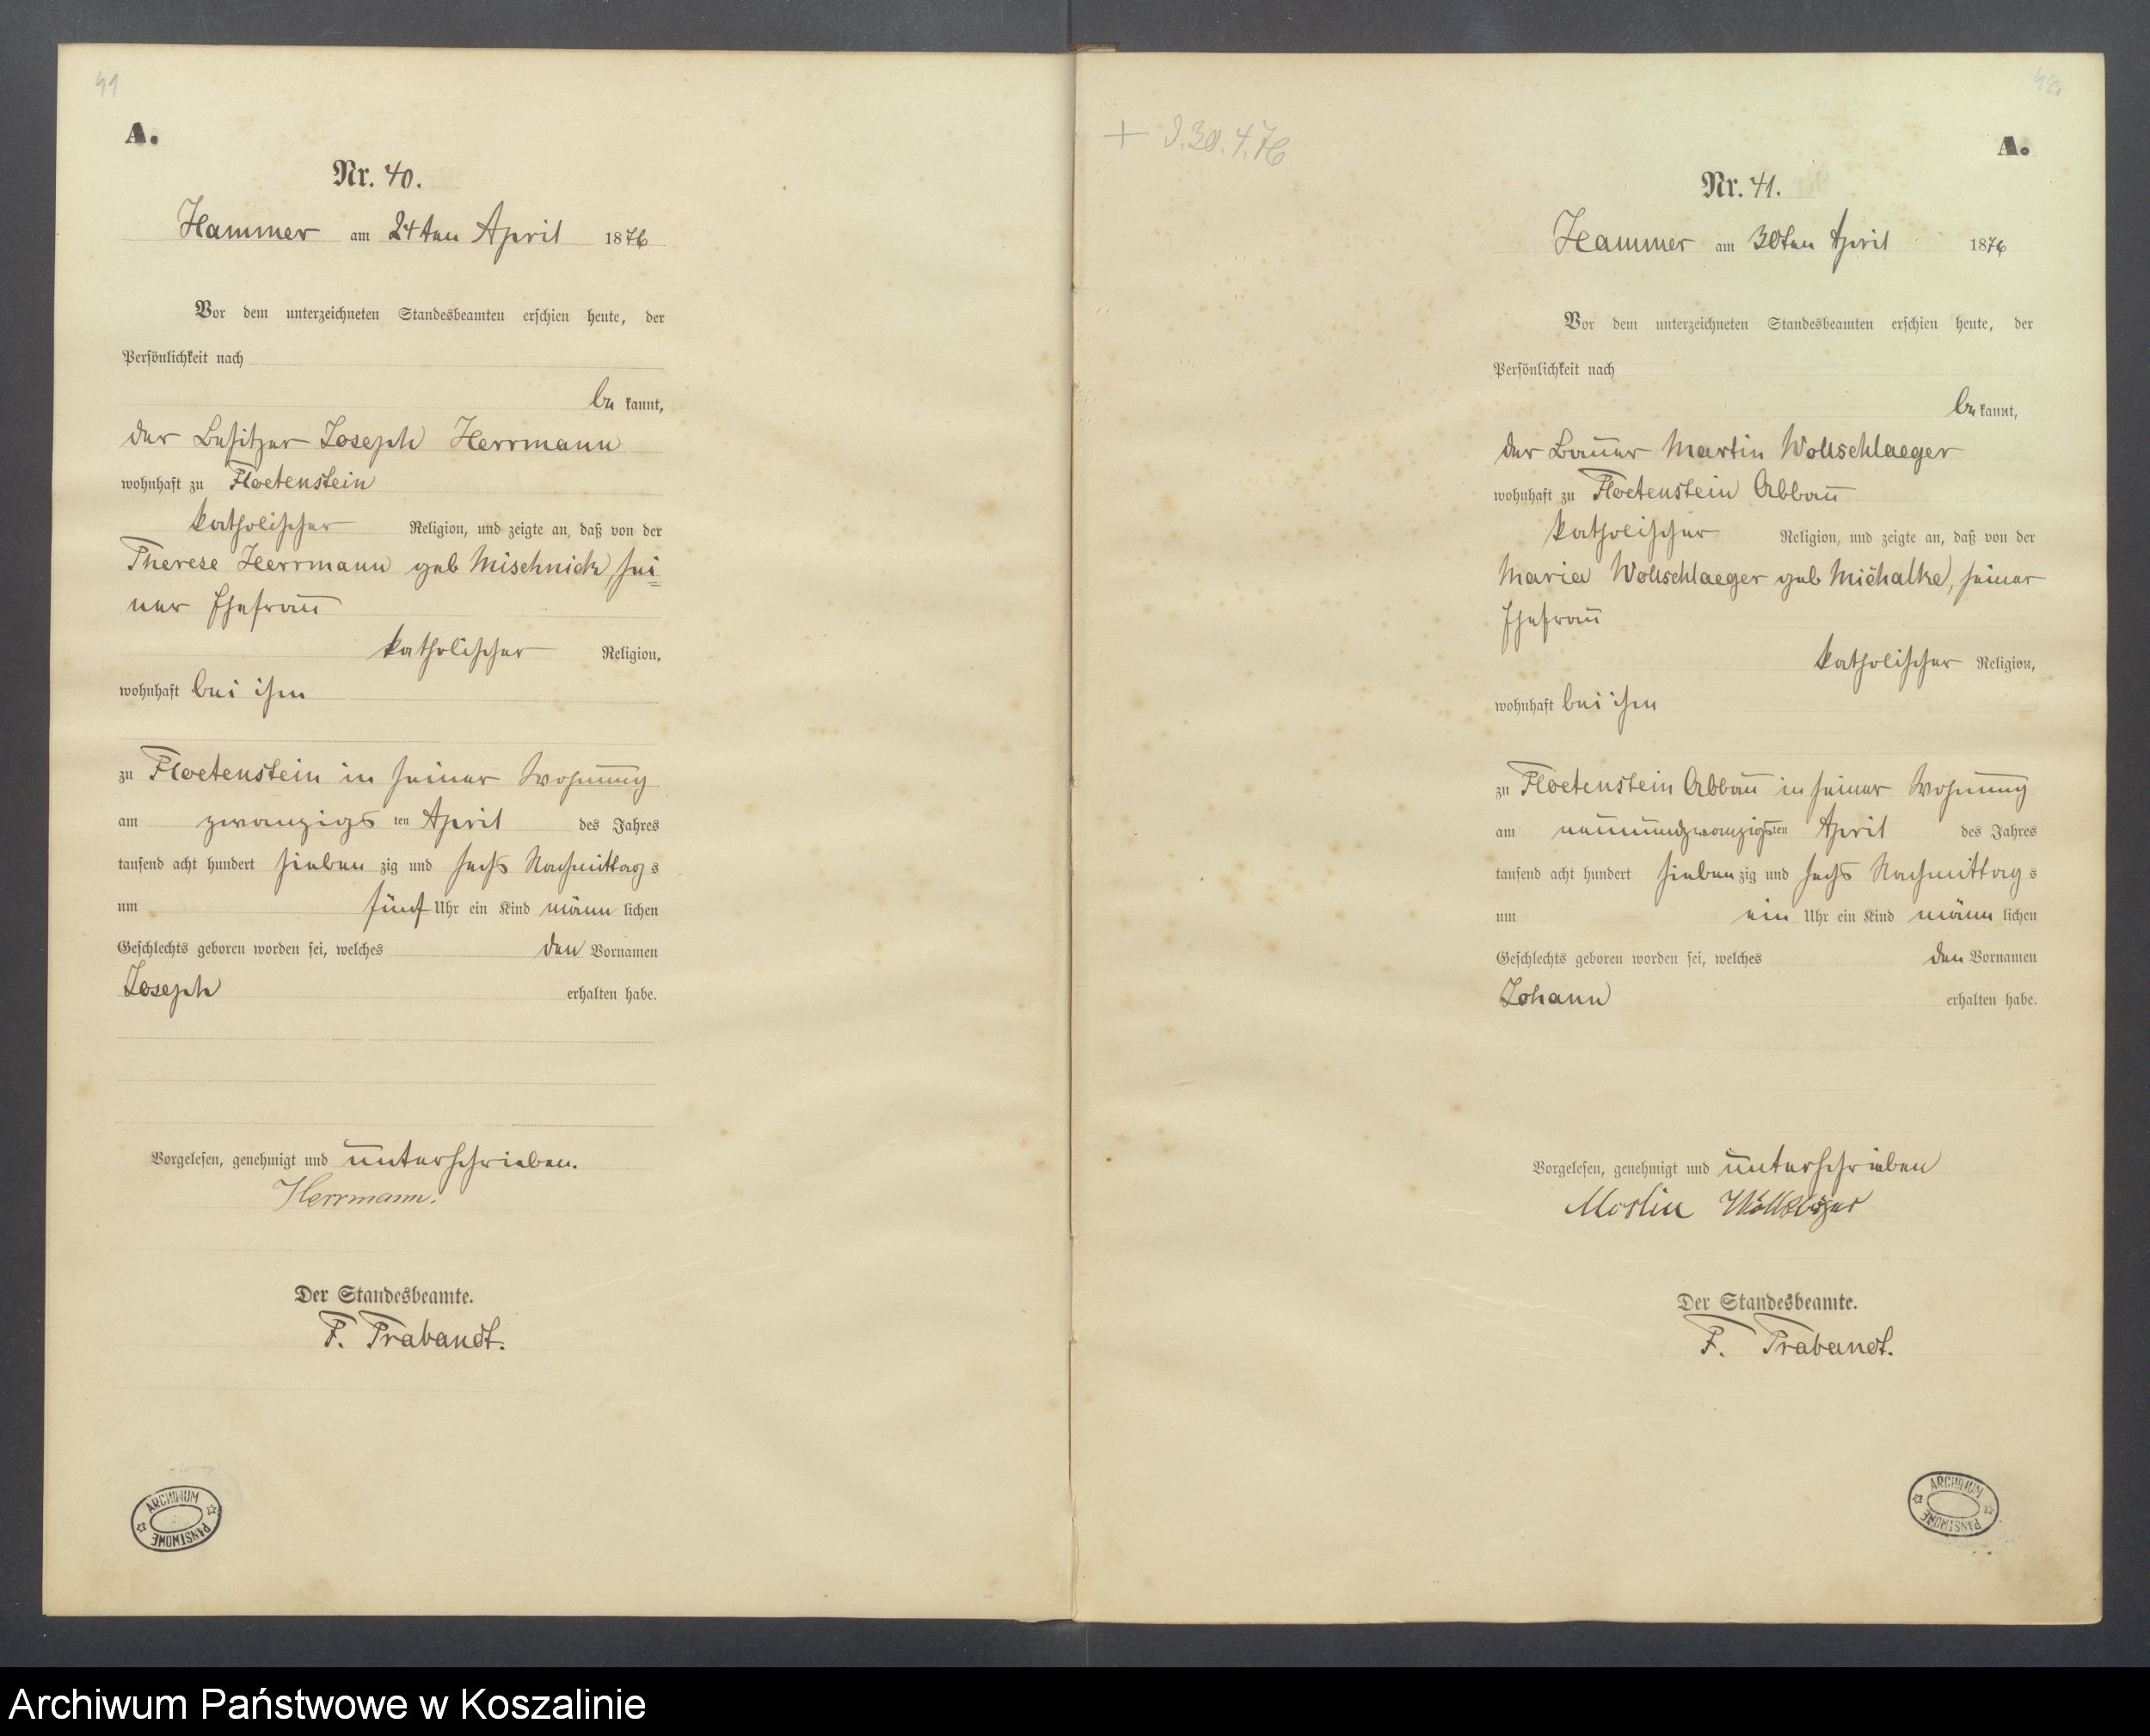 41
A.
Nr. 40.
Hammer am 24ten April 1876
Vor dem unterzeichneten Standesbeamten erschien heute, der
Persönlichkeit nach
be kannt,
der Besitzer Joseph Herrmann
wohnhaft zu Floetenstein
katholischer Religion, und zeigte an, daß von der
Therese Herrmann geb Mischnick, sei=
ner Ehefrau
katholischer Religion,
wohnhaft bei ihm
zu Floetenstein in seiner Wohnung
am zwanzigs ten April des Jahres
tausend acht hundert sieben zig und sechs Nachmittag s
um fünf Uhr ein Kind männ lichen
Geschlechts geboren worden sei, welches den Vornamen
Joseph erhalten habe.
Vorgelesen, genehmigt und unterschrieben.
Herrmann.
Der Standesbeamte.
F. Trabandt.
ARCHIWUM PAŃSTWOWE
42
A.
+ d. 30.4.76
Nr. 41.
Hammer am 30ten April 1876
Vor dem unterzeichneten Standesbeamten erschien heute, der
Persönlichkeit nach
be kannt,
der Bauer Martin Wollschlaeger
wohnhaft zu Floetenstein Abbau
katholischer Religion, und zeigte an, daß von der
Maria Wollschlaeger geb Michalke, seiner
Ehefrau
katholischer Religion,
wohnhaft bei ihm
zu Floetenstein Abbau in seiner Wohnung
am neunundzwanzigs ten April des Jahres
tausend acht hundert sieben zig und sechs Nachmittag s
um ein Uhr ein Kind männ lichen
Geschlechts geboren worden sei, welches den Vornamen
Johann erhalten habe.
Vorgelesen, genehmigt und unterschrieben
Der Standesbeamte.
F. Trabandt.
ARCHIWUM PAŃSTWOWE
Archiwum Państwowe w Koszalinie